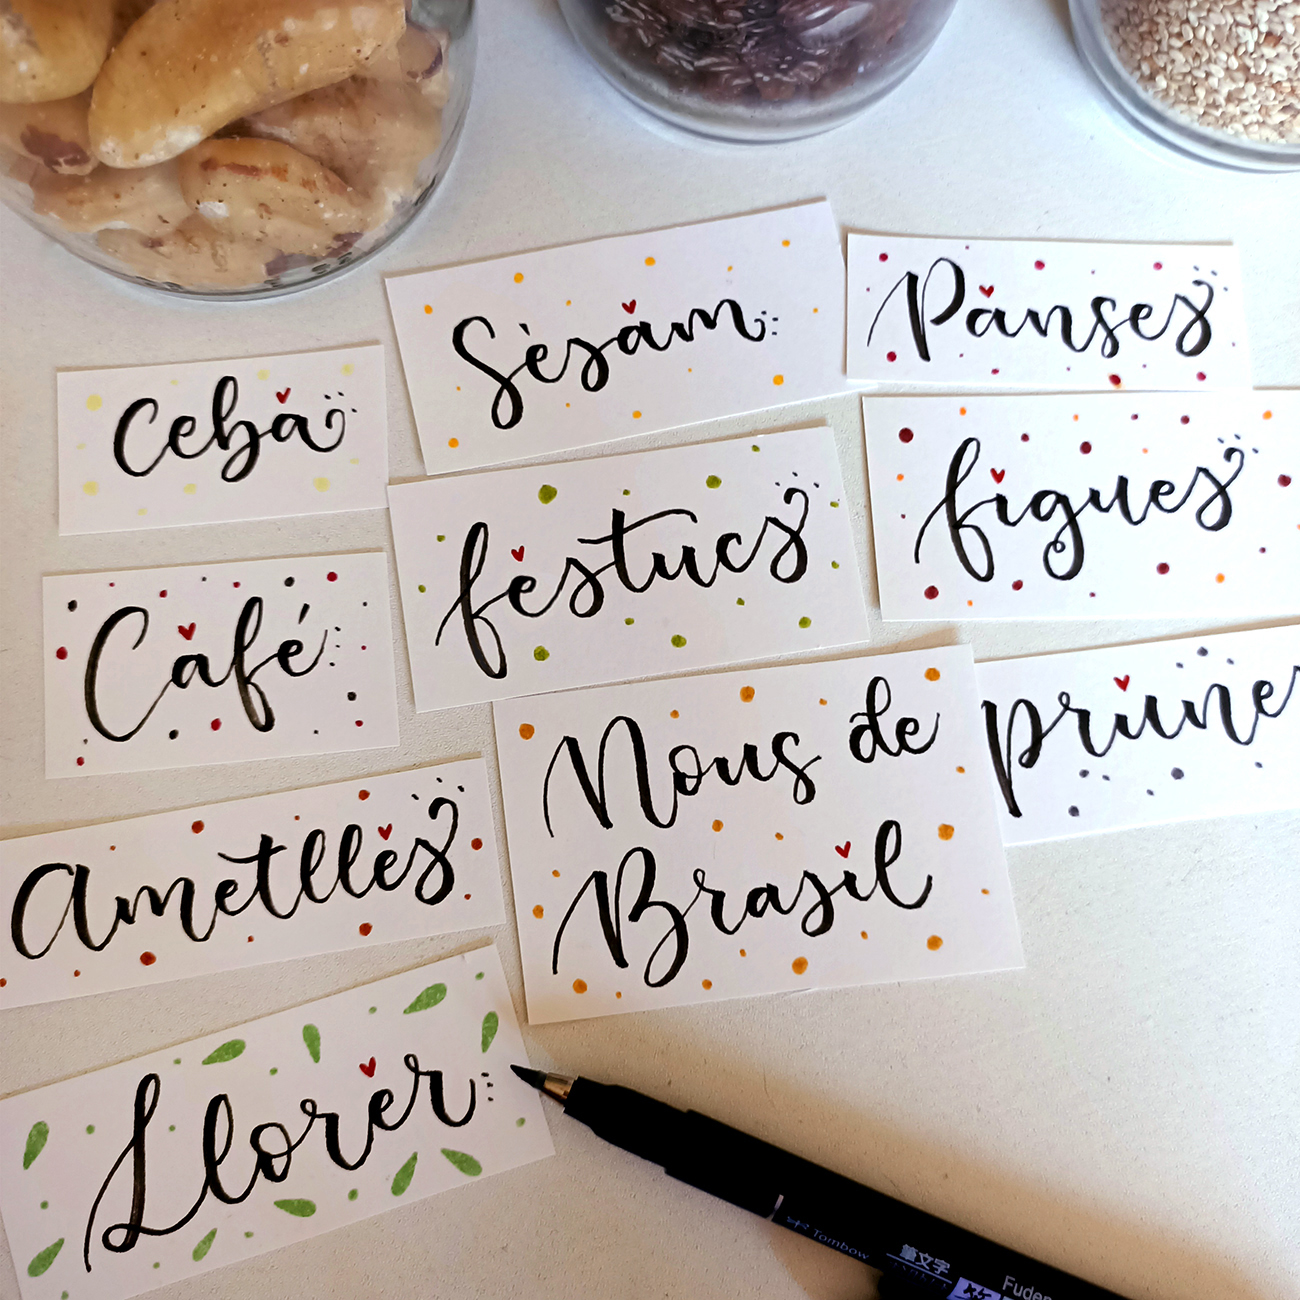 Sèsam
Panses
Ceba
festucs
figues
Café
Nous de
Brasil
prunes
Ametlles
Llorer
Tombow
筆文字